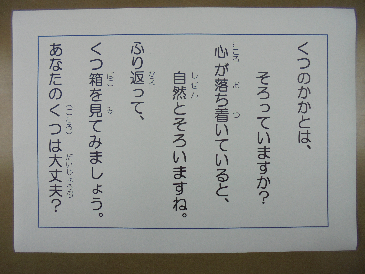 くつのかかとは、
そろっていますか？
心が落ち着いていると、
自然とそろいますね。
ふり返って、
くつ箱を見てみましょう。
あなたのくつは大丈夫？